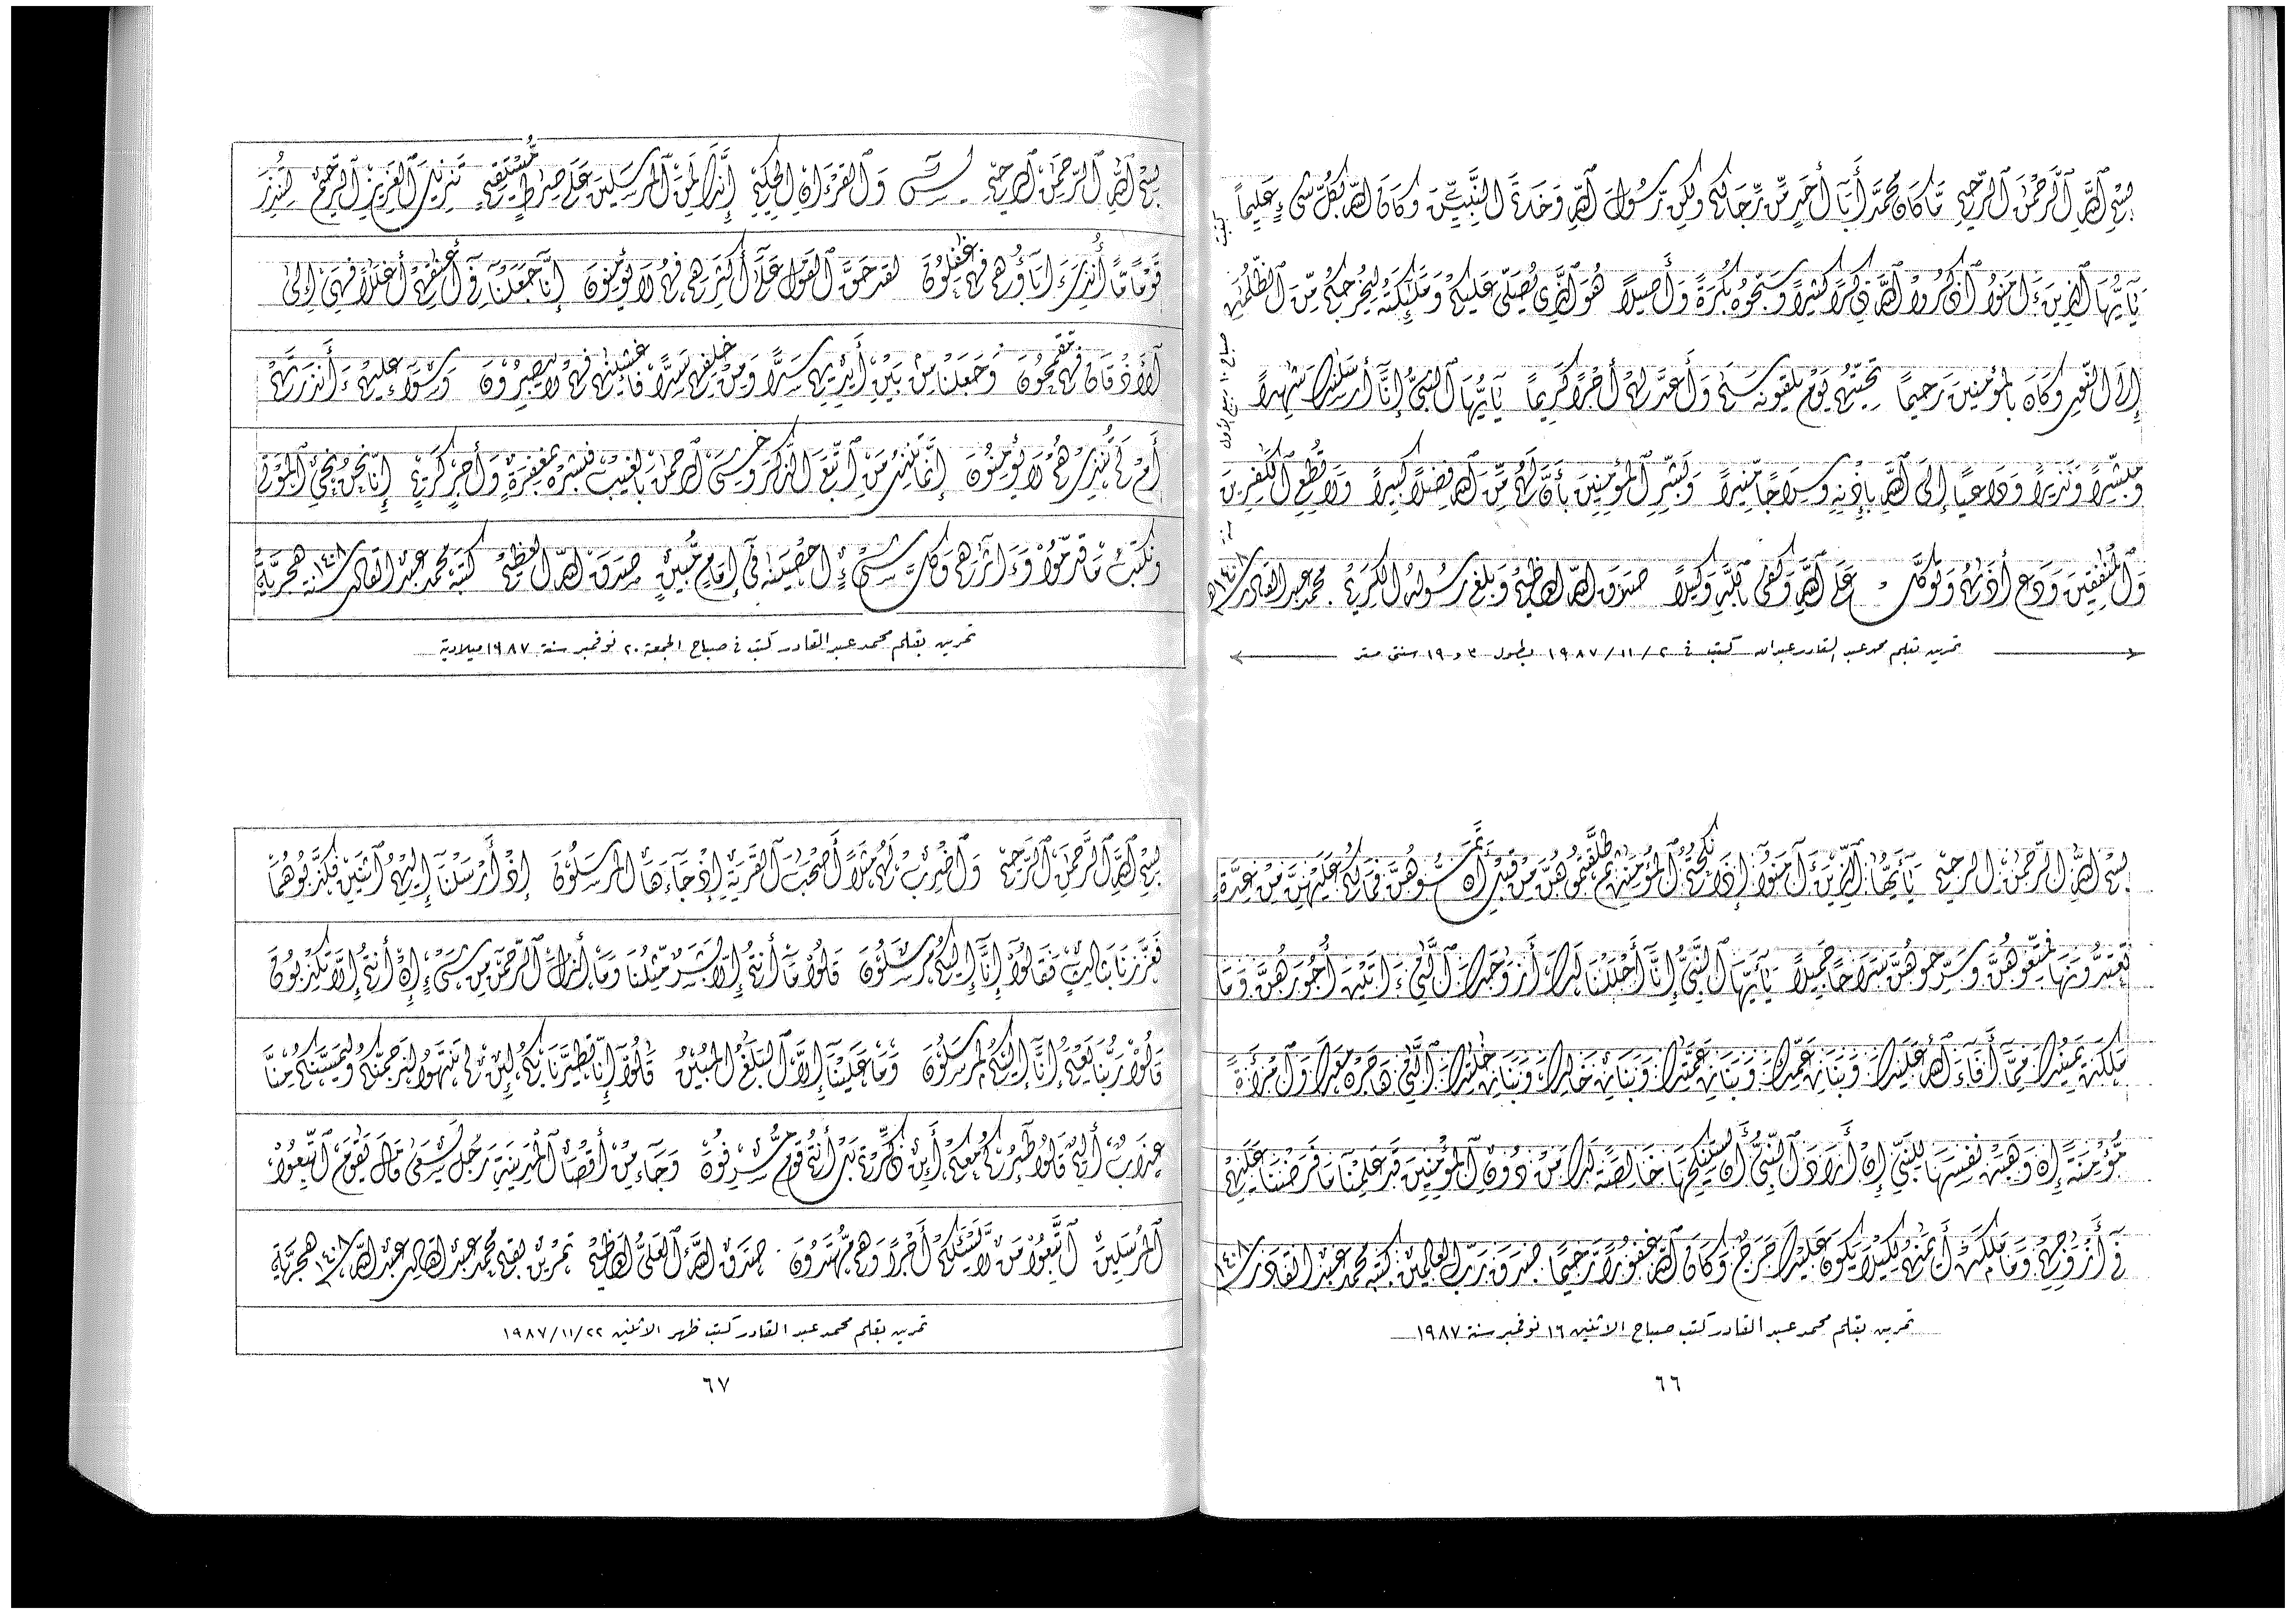 بسم ٱللَّه ٱلرَّحمن ٱلرَّحيم مَّا كَانَ مُحَمَّدٌ أَبَآ أَحَدٍ مِّن رِّجَالِكُم وَلَكِن رَّسُولَ ٱللَّهِ وَخَاتَمَ ٱلنَّبِيِّـنَ وَكَانَ ٱللَّه بِكُلِّ شَىءٍ عَلِيماً
يَٰٓأَيُّهَا ٱلَّذِينَ ءَامَنُوا۟ ٱذكُرُوا۟ ٱللَّهَ ذِكرًا كَثِيرًا وَسَبِّحُوهُ بُكرَةً وَأَصِيلًا هُوَ ٱلَّذِى يُصَلِّى عَلَيكُم وَمَلَٰٓئِكَتُهُ لِيُخرِجَكُم مِّنَ ٱلظُّلُمَٰتِ
إِلَى ٱلنُّورِ وَكَانَ بِٱلمُؤمِنِينَ رَحِيمًا تَحِيَّتُهُم يَومَ يَلقَونَهُ سَلَٰم وَأَعَدَّ لَهُم أَجرًا كَرِيمًا يَٰٓأَيُّهَا ٱلنَّبِىُّ إِنَّآ أَرسَلنَٰكَ شَٰهِدًا
وَمُبَشِّرًا وَنَذِيرًا وَدَاعِيًا إِلَى ٱللَّهِ بِإِذنِهِ وَسِرَاجًا مُّنِيرًا وَبَشِّرِ ٱلمُؤمِنِينَ بِأَنَّ لَهُم مِّنَ ٱللَّهِ فَضلًا كَبِيرًا وَلَا تُطِعِ ٱلكَٰفِرِينَ
وَٱلمُنَٰفِقِينَ وَدَع أَذَىٰهُم وَتَوَكَّل عَلَى ٱللَّهِ وَكَفَىٰ بِٱللَّهِ وَكِيلًا صدق ٱللَّه العظيم وبلغ رسوله الكريم . محمد عبد القادر ١٤٠٨ه
كتبت صباح ١٠ ربيع الأول سنة
تمرين بقلم محمد عبد القادر عبدالله كتب فى ٢/١١/١٩٨٧ بطول ٣ و ١٩ سنتى متر
بسم ٱللَّه ٱلرحمن ٱلرحيم يَٰٓأَيُّهَا ٱلَّذِينَ ءَامَنُوٓا۟ إِذَا نَكَحتُمُ ٱلمُؤمِنَٰتِ ثُمَّ طَلَّقتُمُوهُنَّ مِن قَبلِ أَن تَمَسُّوهُنَّ فَمَا لَكُم عَلَيهِنَّ مِن عِدَّةٍ
تَعتَدُّونَهَا فَمَتِّعُوهُنَّ وَسَرِّحُوهُنَّ سَرَاحًا جَمِيلًا يَٰٓأَيُّهَا ٱلنَّبِىُّ إِنَّآ أَحلَلنَا لَكَ أَزوَٰجَكَ ٱلَّٰتِىٓ ءَاتَيتَ أُجُورَهُنَّ وَمَا
مَلَكَت يَمِينُكَ مِمَّآ أَفَآءَ ٱللَّهُ عَلَيكَ وَبَنَاتِ عَمِّكَ وَبَنَاتِ عَمَّٰتِكَ وَبَنَاتِ خَالِكَ وَبَنَاتِ خَٰلَٰتِكَ ٱلَّٰتِى هَاجَرنَ مَعَكَ وَٱمرَأَةً
مُّؤمِنَةً إِن وَهَبَت نَفسَهَا لِلنَّبِىِّ إِن أَرَادَ ٱلنَّبِىُّ أَن يَستَنكِحَهَا خَالِصَةً لَّكَ مِن دُونِ ٱلمُؤمِنِينَ قَد عَلِمنَا مَا فَرَضنَا عَلَيهِم
فِىٓ أَزوَٰجِهِم وَمَا مَلَكَت أَيمَٰنُهُم لِكَيلَا يَكُونَ عَلَيكَ حَرَجٌ وَكَانَ ٱللَّهُ غَفُورًا رَّحِيمًا صدق رب العالمين كتبه محمد عبد القادر ١٤٠٨
تمرين بقلم محمد عبد القادر كتب صباح الاثنين ١٦ نوفمبر سنة ١٩٨٧
٦٦
بسم ٱللَّه ٱلرَّحمن ٱلرحيم يسٓ وَٱلقُرءَانِ ٱلحَكِيمِ إِنَّكَ لَمِنَ ٱلمُرسَلِينَ عَلَىٰ صِرَٰطٍ مُّستَقِيمٍ تَنزِيلَ ٱلعَزِيزِ ٱلرَّحِيمِ لِتُنذِرَ
قَومًا مَّآ أُنذِرَ ءَابَآؤُهُم فَهُم غَٰفِلُونَ لَقَد حَقَّ ٱلقَولُ عَلَىٰٓ أَكثَرِهِم فَهُم لَا يُؤمِنُونَ إِنَّا جَعَلنَا فِىٓ أَعنَٰقِهِم أَغلَٰلًا فَهِىَ إِلَى
ٱلأَذقَانِ فَهُم مُّقمَحُونَ وَجَعَلنَا مِن بَينِ أَيدِيهِم سَدًّا وَمِن خَلفِهِم سَدًّا فَأَغشَينَٰهُم فَهُم لَا يُبصِرُونَ وَسَوَآءٌ عَلَيهِم ءَأَنذَرتَهُم
أَم لَم تُنذِرهُم لَا يُؤمِنُونَ إِنَّمَا تُنذِرُ مَنِ ٱتَّبَعَ ٱلذِّكرَ وَخَشِىَ ٱلرَّحمَٰنَ بِٱلغَيبِ فَبَشِّرهُ بِمَغفِرَةٍ وَأَجرٍ كَرِيمٍ إِنَّا نَحنُ نُحىِ ٱلمَوتَىٰ
وَنَكتُبُ مَا قَدَّمُوا۟ وَءَاثَٰرَهُم وَكُلَّ شَىءٍ أَحصَينَٰهُ فِىٓ إِمَامٍ مُّبِينٍ صدق ٱللَّه العظيم كتبه محمد عبد القادر سنة ١٤٠٨ هجرية
تمرين بقلم محمد عبد القادر كتب فى صباح الجمعة ٢٠ نوفمبر سنة ١٩٨٧ ميلادية
بسم ٱللَّه ٱلرَّحمن ٱلرحيم وَٱضرِب لَهُم مَّثَلًا أَصحَٰبَ ٱلقَريَةِ إِذ جَآءَهَا ٱلمُرسَلُونَ إِذ أَرسَلنَآ إِلَيهِمُ ٱثنَينِ فَكَذَّبُوهُمَا
فَعَزَّزنَا بِثَالِثٍ فَقَالُوٓا۟ إِنَّآ إِلَيكُم مُّرسَلُونَ قَالُوا۟ مَآ أَنتُم إِلَّا بَشَرٌ مِّثلُنَا وَمَآ أَنزَلَ ٱلرَّحمَٰنُ مِن شَىءٍ إِن أَنتُم إِلَّا تَكذِبُونَ
قَالُوا۟ رَبُّنَا يَعلَمُ إِنَّآ إِلَيكُم لَمُرسَلُونَ وَمَا عَلَينَآ إِلَّا ٱلبَلَٰغُ ٱلمُبِينُ قَالُوٓا۟ إِنَّا تَطَيَّرنَا بِكُم لَئِن لَّم تَنتَهُوا۟ لَنَرجُمَنَّكُم وَلَيَمَسَّنَّكُم مِّنَّا
عَذَابٌ أَلِيمٌ قَالُوا۟ طَٰٓئِرُكُم مَّعَكُم أَئِن ذُكِّرتُم بَل أَنتُم قَومٌ مُّسرِفُونَ وَجَآءَ مِن أَقصَا ٱلمَدِينَةِ رَجُلٌ يَسعَىٰ قَالَ يَٰقَومِ ٱتَّبِعُوا۟
ٱلمُرسَلِينَ ٱتَّبِعُوا۟ مَن لَّا يَسـَٔلُكُم أَجرًا وَهُم مُّهتَدُونَ . صدق ٱللَّه العلى العظيم تمرين بقلم محمد عبد القادر عبد الله ١٤٠٨ هجرية
تمرين بقلم محمد عبد القادر كتب ظهر الاثنين ٢٢/١١/١٩٨٧
٦٧